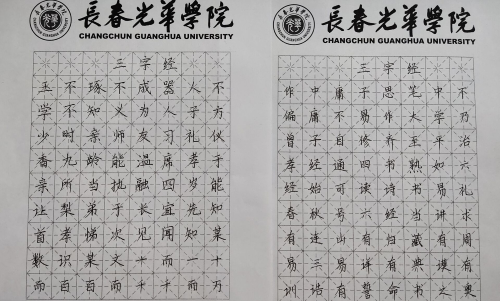 長春光華學院
CHANGCHUN GUANGHUA UNIVERSITY
三字经
玉不琢不成器人不
学不知义为人子方
少时亲师友习礼仪
香九龄能温席孝于
亲所当执融四岁能
让梨弟于长宜先知
首孝悌次见闻知某
数识某文十而一十
而百百而千千而万
長春光華學院
CHANGCHUN GUANGHUA UNIVERSITY
三字经
作中庸子思笔中不
偏庸不易作大学乃
曾子自修齐至平治
孝经通四书熟如六
经始可读诗书易礼
春秋号六经当讲求
有连山有归藏有周
易三易详有典谟有
训诰有誓命书之奥